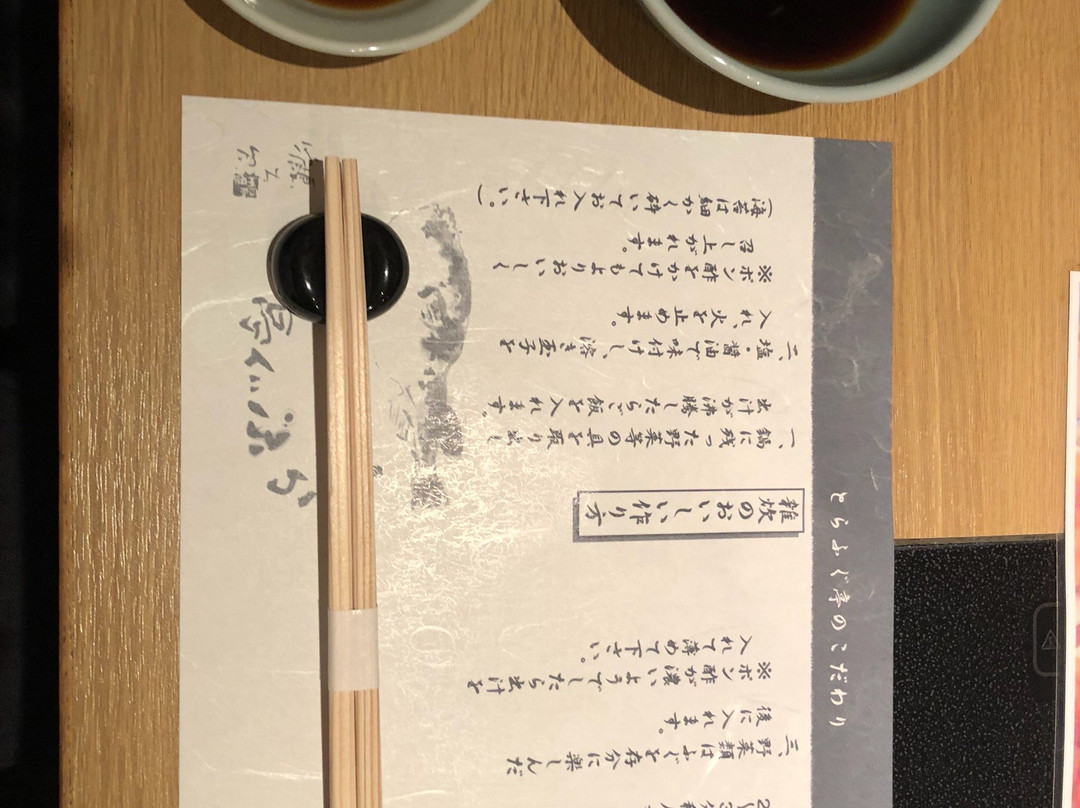 とらふぐ亭のこだわり
三、野菜類はふぐを存分に楽しんだ
後に入れます。
※ポン酢が濃いようでしたら出汁を
入れて薄めて下さい。
雑炊のおいしい作り方
一、鍋に残った野菜等の具を取り出し
出汁が沸騰したらご飯を入れます。
二、塩・醤油で味付けし、溶き玉子を
入れ、火を止めます。
※ポン酢をかけてもよりおいしく
召し上がれます。
（海苔は細かく砕いてお入れ下さい。）